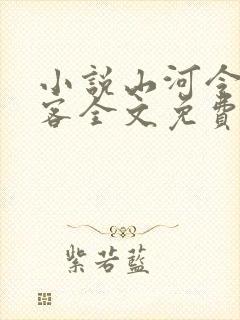 小說山河令
客全文免費
紫若藍